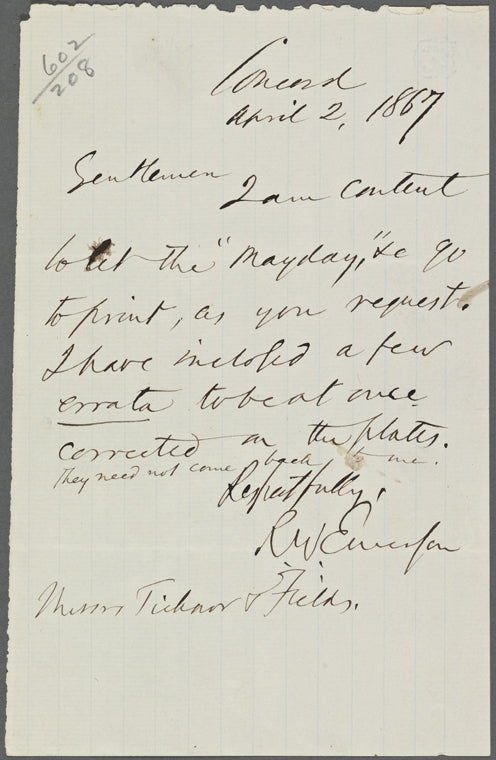 602
208
Concord
April 2, 1867
Gentlemen
I am content
to let the "Mayday," &c go
to print, as you request.
I have inclosed a few
errata to be at once
corrected on the plates.
They need not come back to me.
Respectfully,
R W Emerson
Messrs Ticknor & Fields.